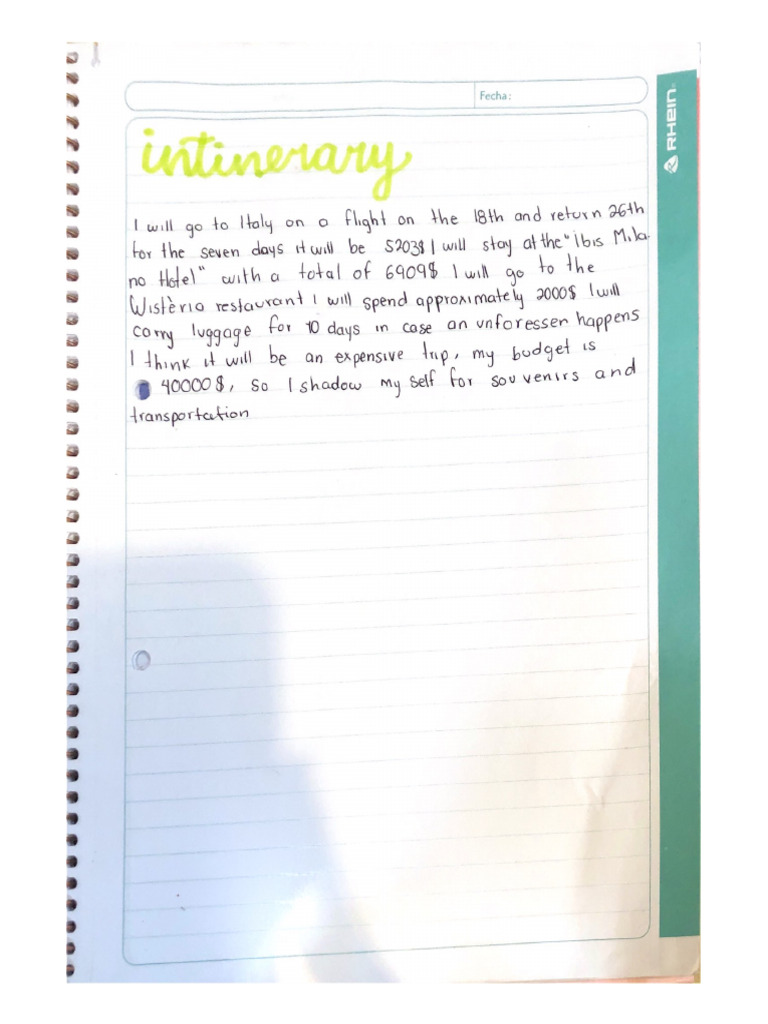 Fecha:
RHEIN
intinerary
I will go to Italy on a flight on the 18th and return 26th
for the seven days it will be 5203$ I will stay at the "ibis Mila-
no Hotel" with a total of 6909$ I will go to the
Wistèria restaurant I will spend approximately 2000$ I will
carry luggage for 10 days in case an unforessen happens
I think it will be an expensive trip, my budget is
40000$, so I shadow my self for souvenirs and
transportation